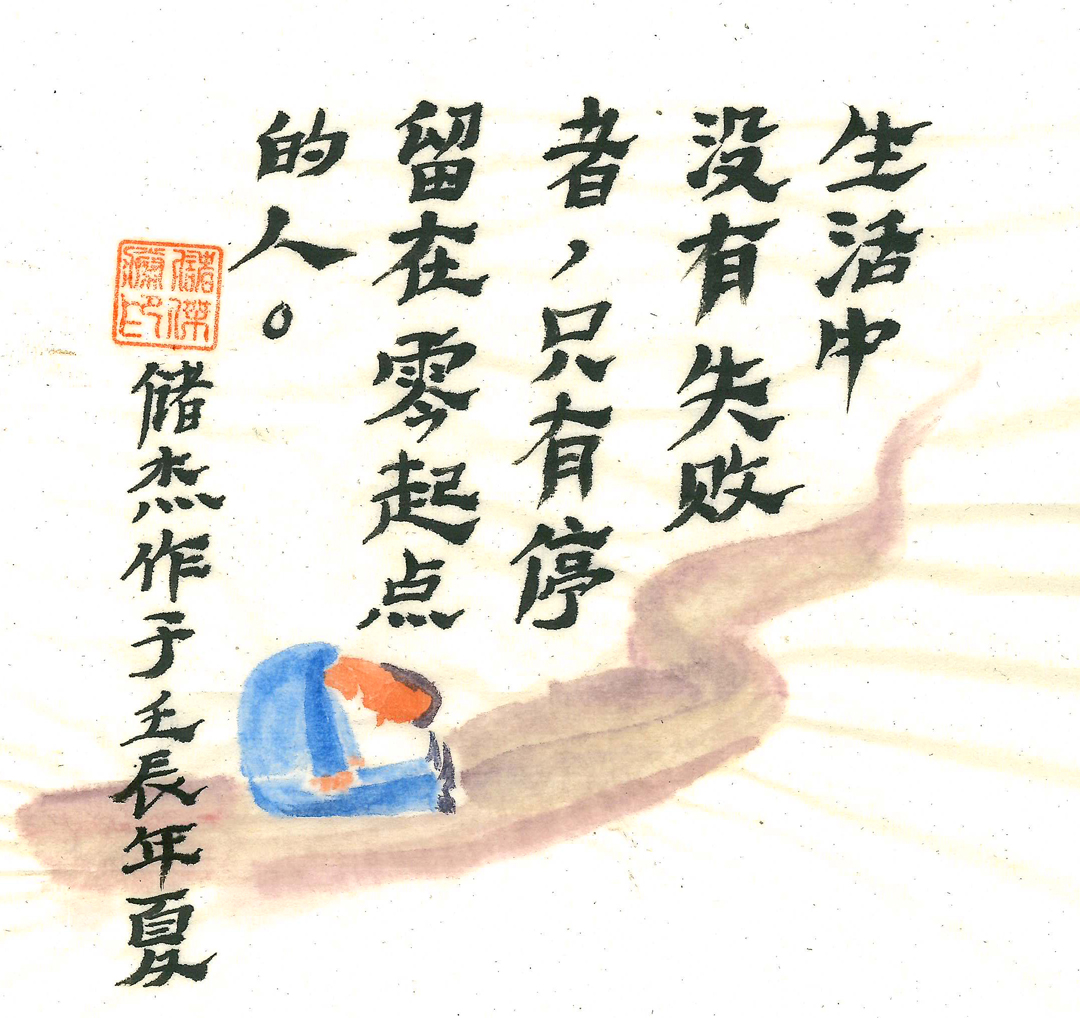 生活中
没有失败
者，只有停
留在零起点
的人。
儲傑
印
储杰作于壬辰年夏